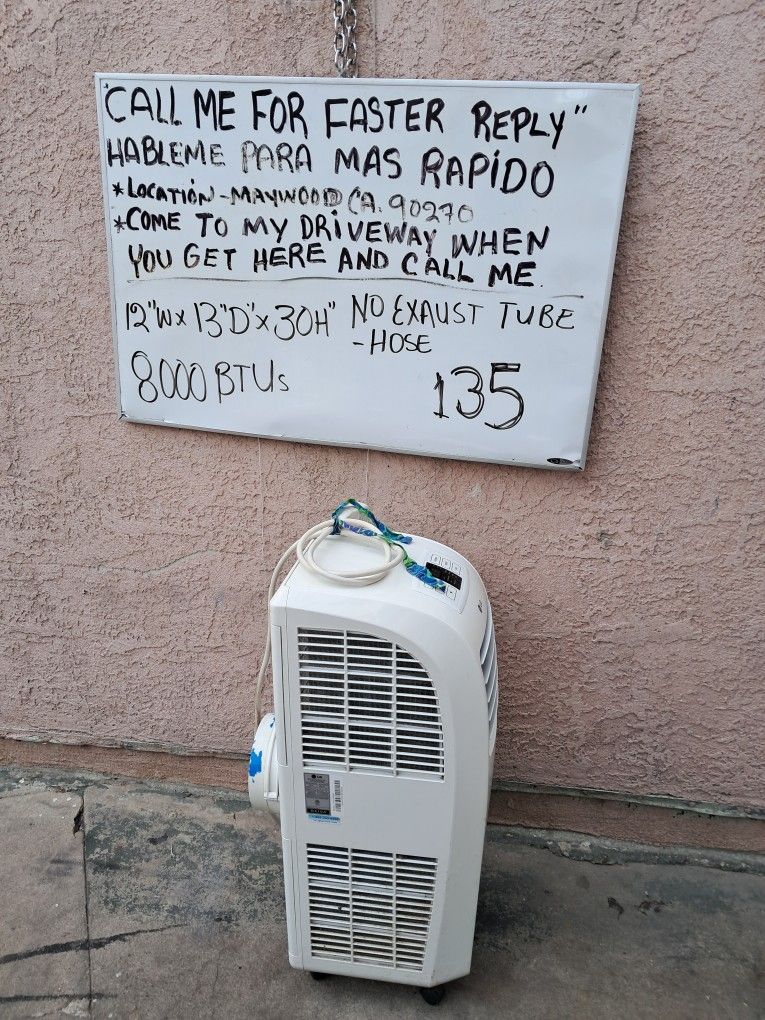 "CALL ME FOR FASTER REPLY"
HABLEME PARA MAS RAPIDO
*LOCATION-MAYWOOD CA. 90270
*COME TO MY DRIVEWAY WHEN
YOU GET HERE AND CALL ME.
12"W x 13"D" x 30H" NO EXAUST TUBE
-HOSE
8000 BTUs
135
LG